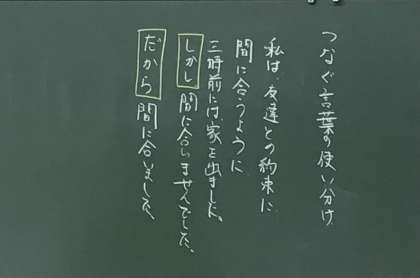 つなぐ言葉の使い分け
私は、友達との約束に
間に合うように
三時前には、家を出ました。
しかし 間に合いませんでした。
だから 間に合いました。